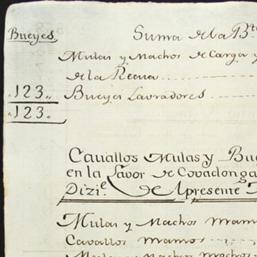 Bueyes Suma de la B
Mulas y Machos de Carga y
de la Recua
„123„ Bueyes Lavradores
„123„
Cavallos Mulas y Bue
en la Lavor de Covadonga
Dizi.e de Apresente
Mulas y Machos Mans
Cavallos Mansos
Mulas y Machos